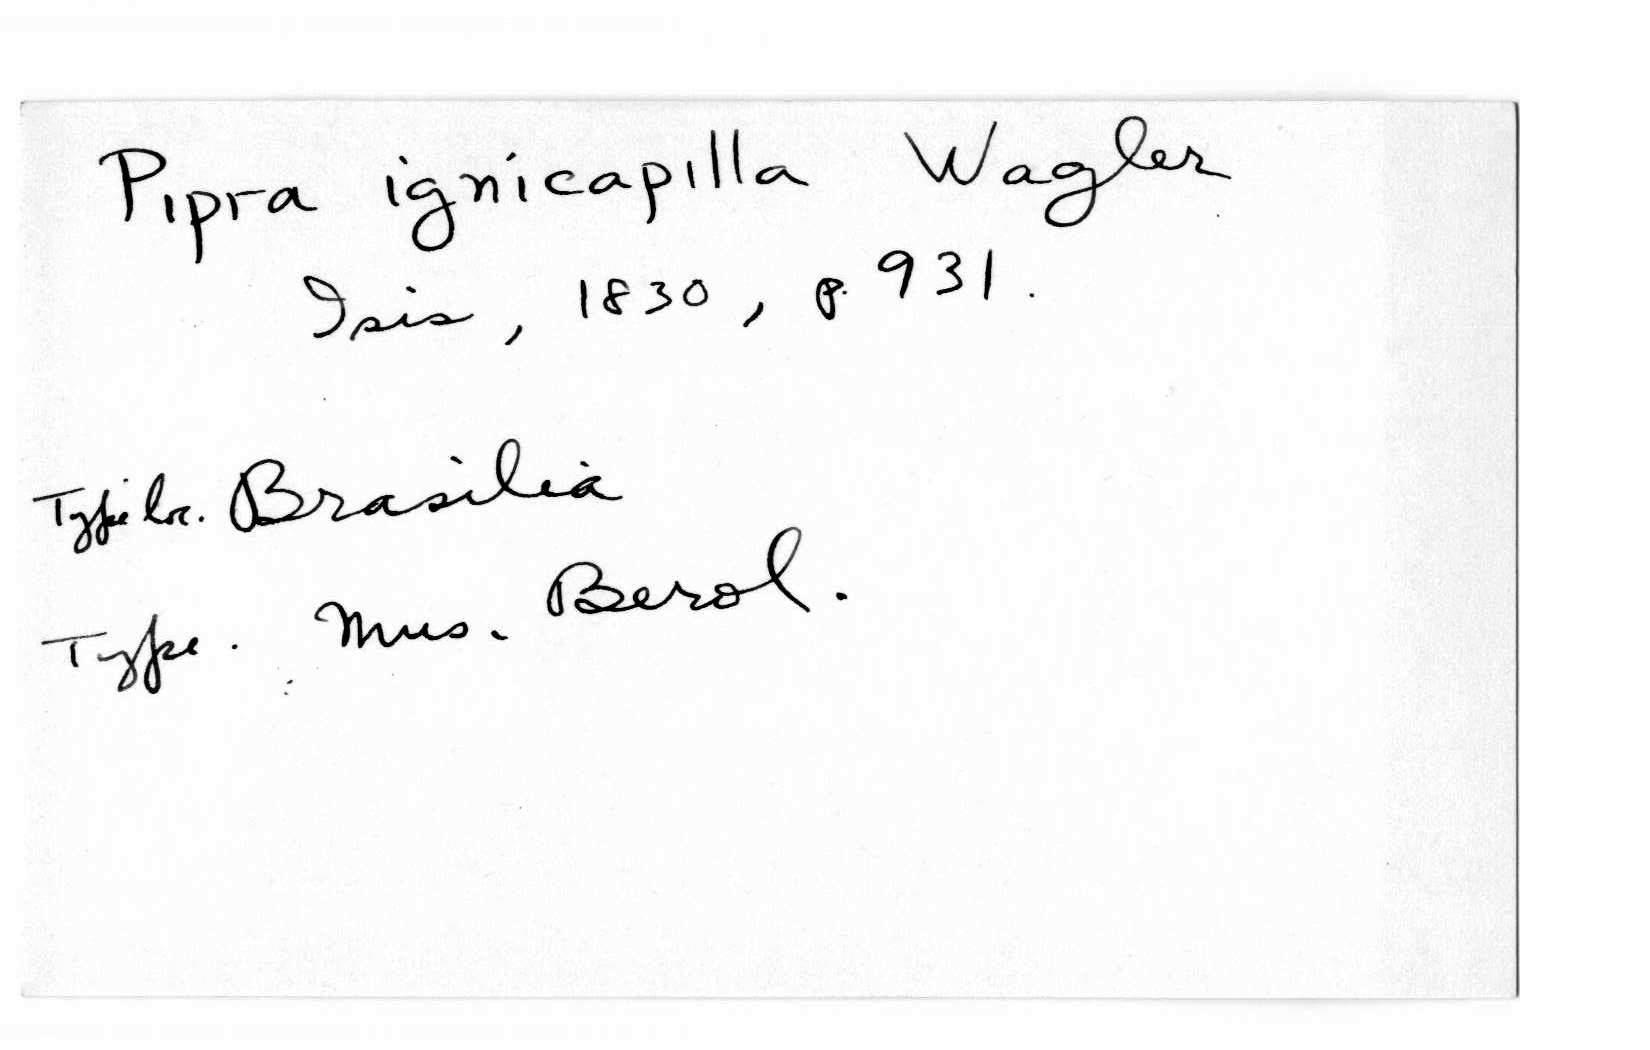 Pipra ignicapilla Wagler
Isis, 1830, p. 931.
Type loc. Brasilia
Type. Mus. Berol.